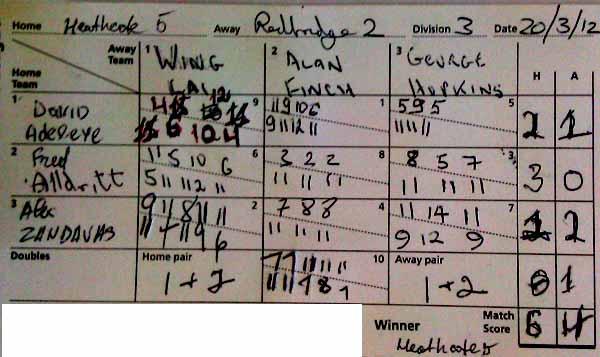 Home Heathcote 5 Away Redbridge 2 Division 3 Date 20/3/12
Away Team 1 WING LAU 2 ALAN FINCH 3 GEORGE HOPKINS H A
Home Team
1 DAVID 9 11 9 10 6 1 5 9 5 5
Adeleye 6 10 4 9 11 12 11 11 11 11 2 1
2 Fred 11 5 10 6 6 3 2 2 8 8 5 7 3
Alldritt 5 11 12 11 11 11 11 11 11 11 3 0
3 Alex 9 11 8 11 11 2 7 8 8 4 11 14 11 7
ZANDAVAS 11 7 11 9 6 11 11 11 9 12 9 2
Doubles Home pair 10 Away pair
1 + 2 1 + 2 0 1
Winner Heathcote 5 Match Score 6 4